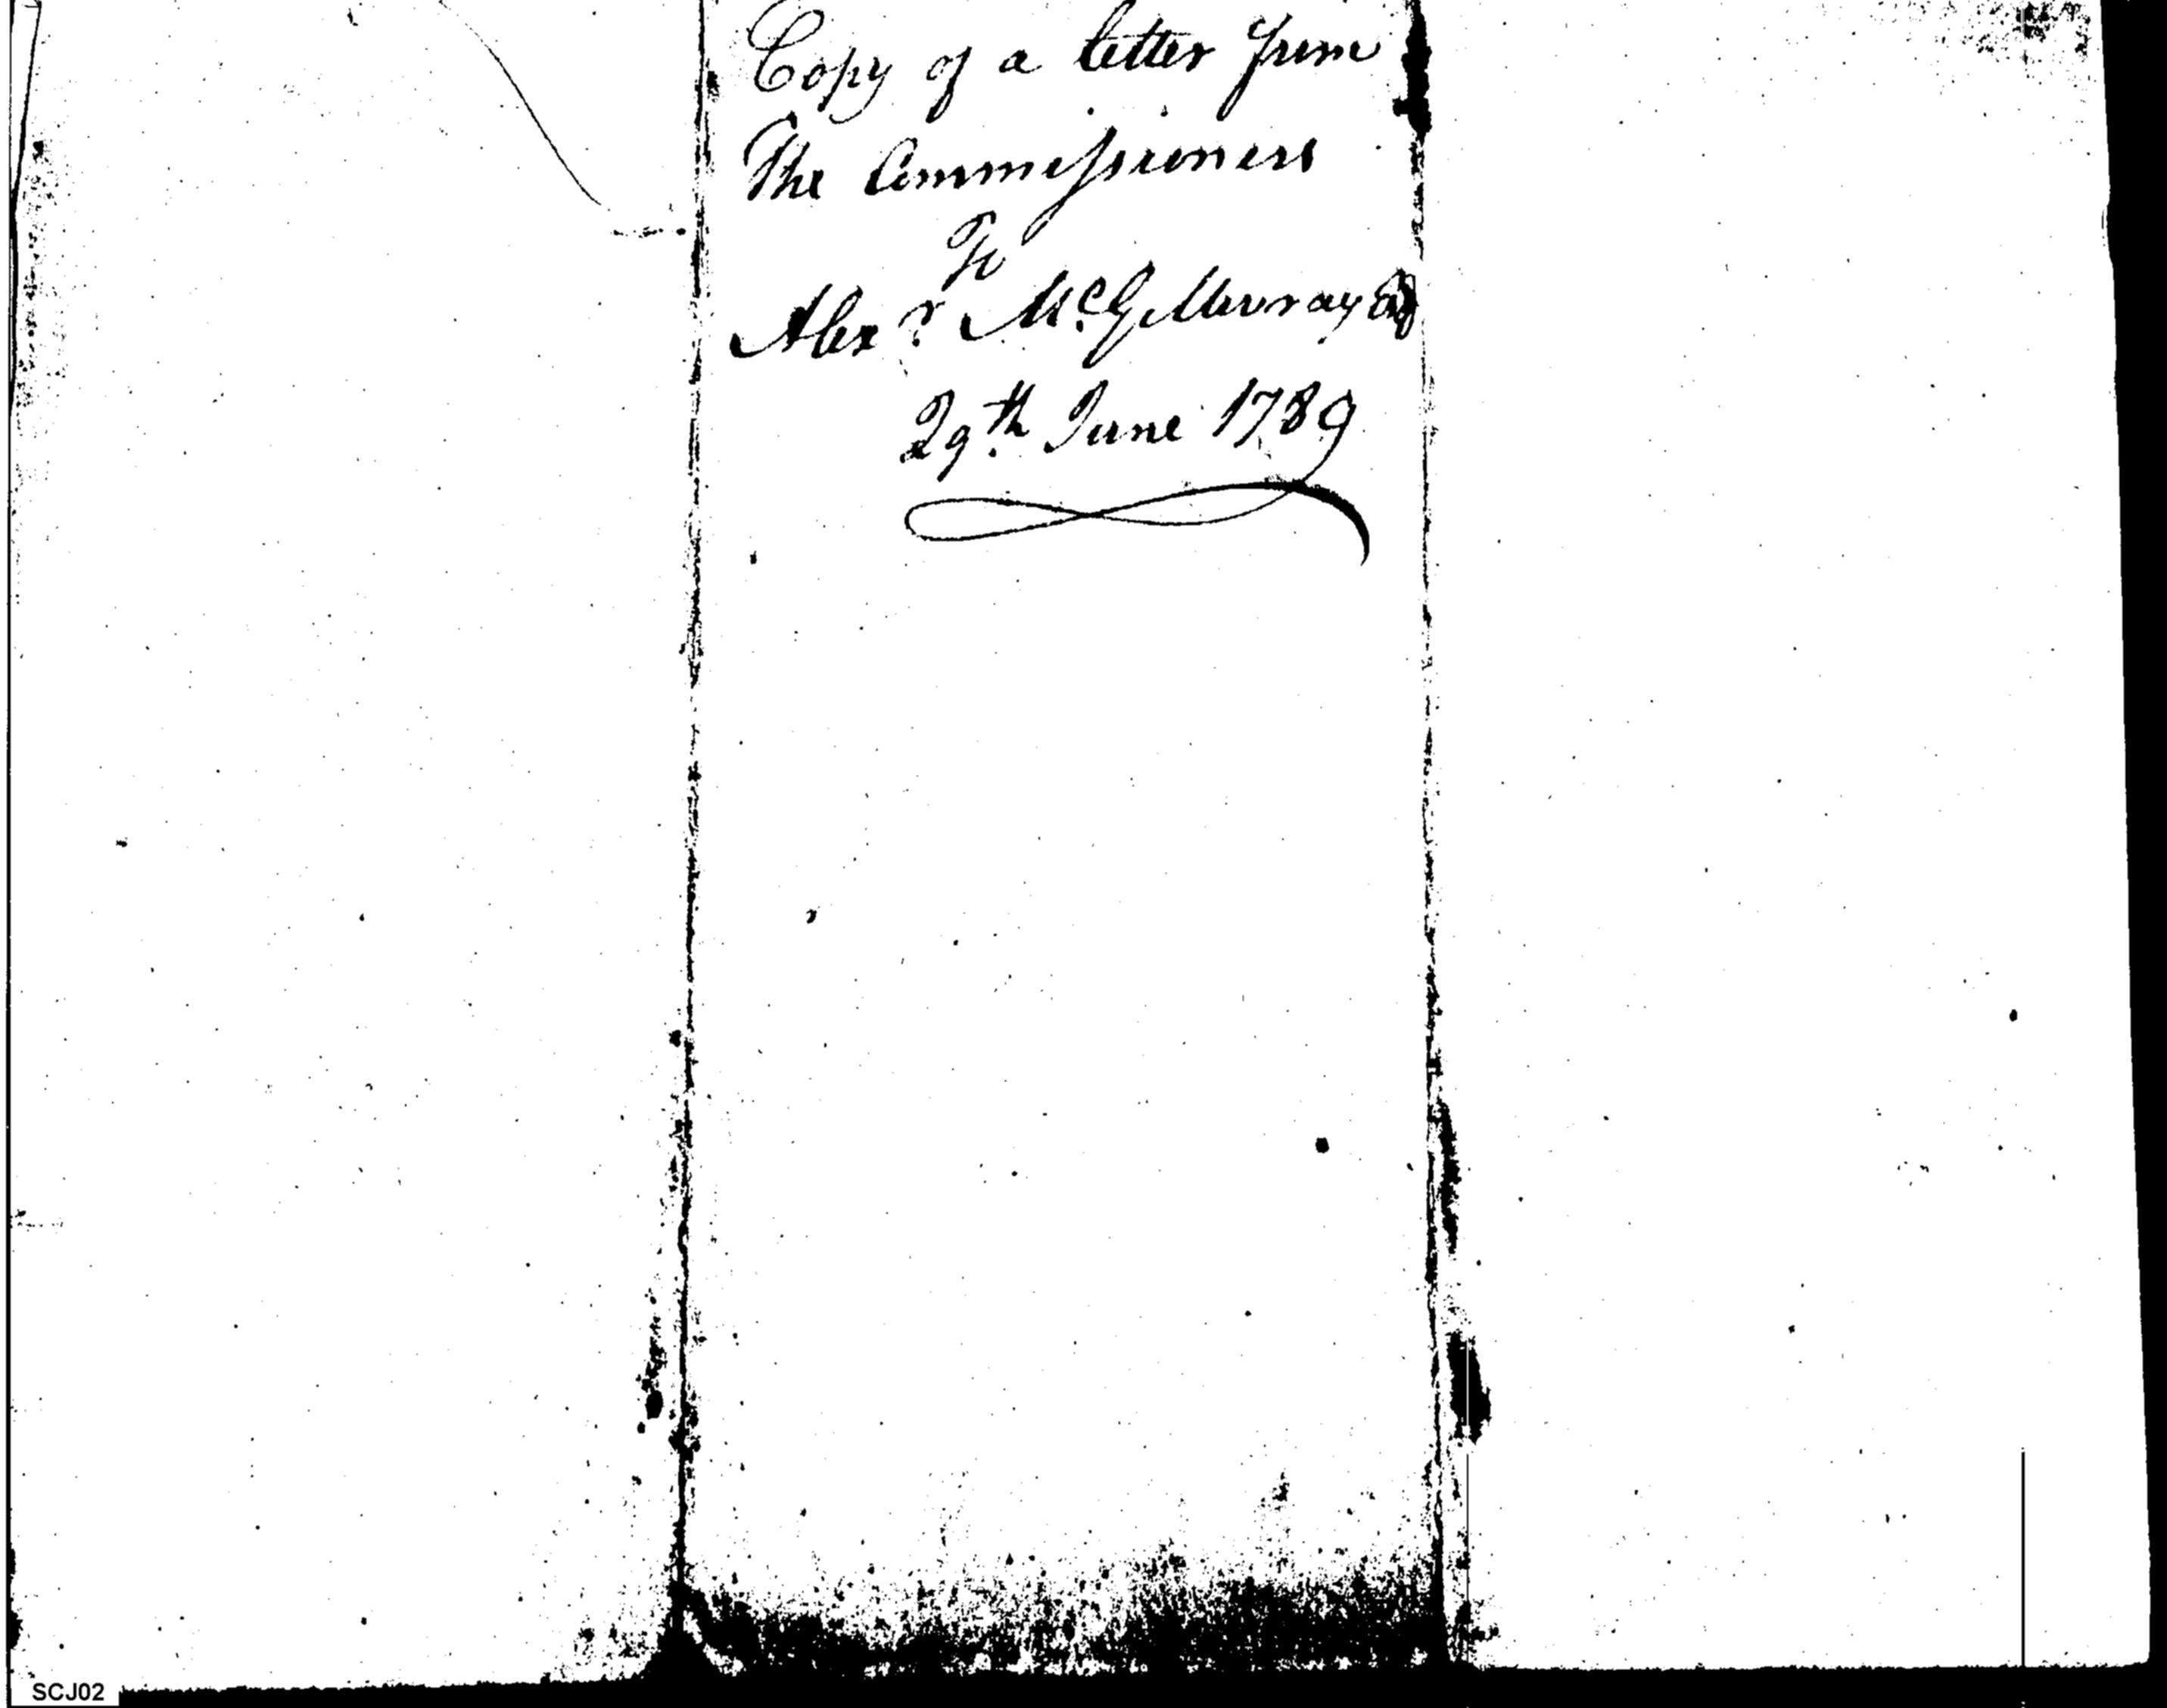 Copy of a letter from
The Commissioners
To
Alexr. McGillivray Esq
29th. June 1789
SCJ02